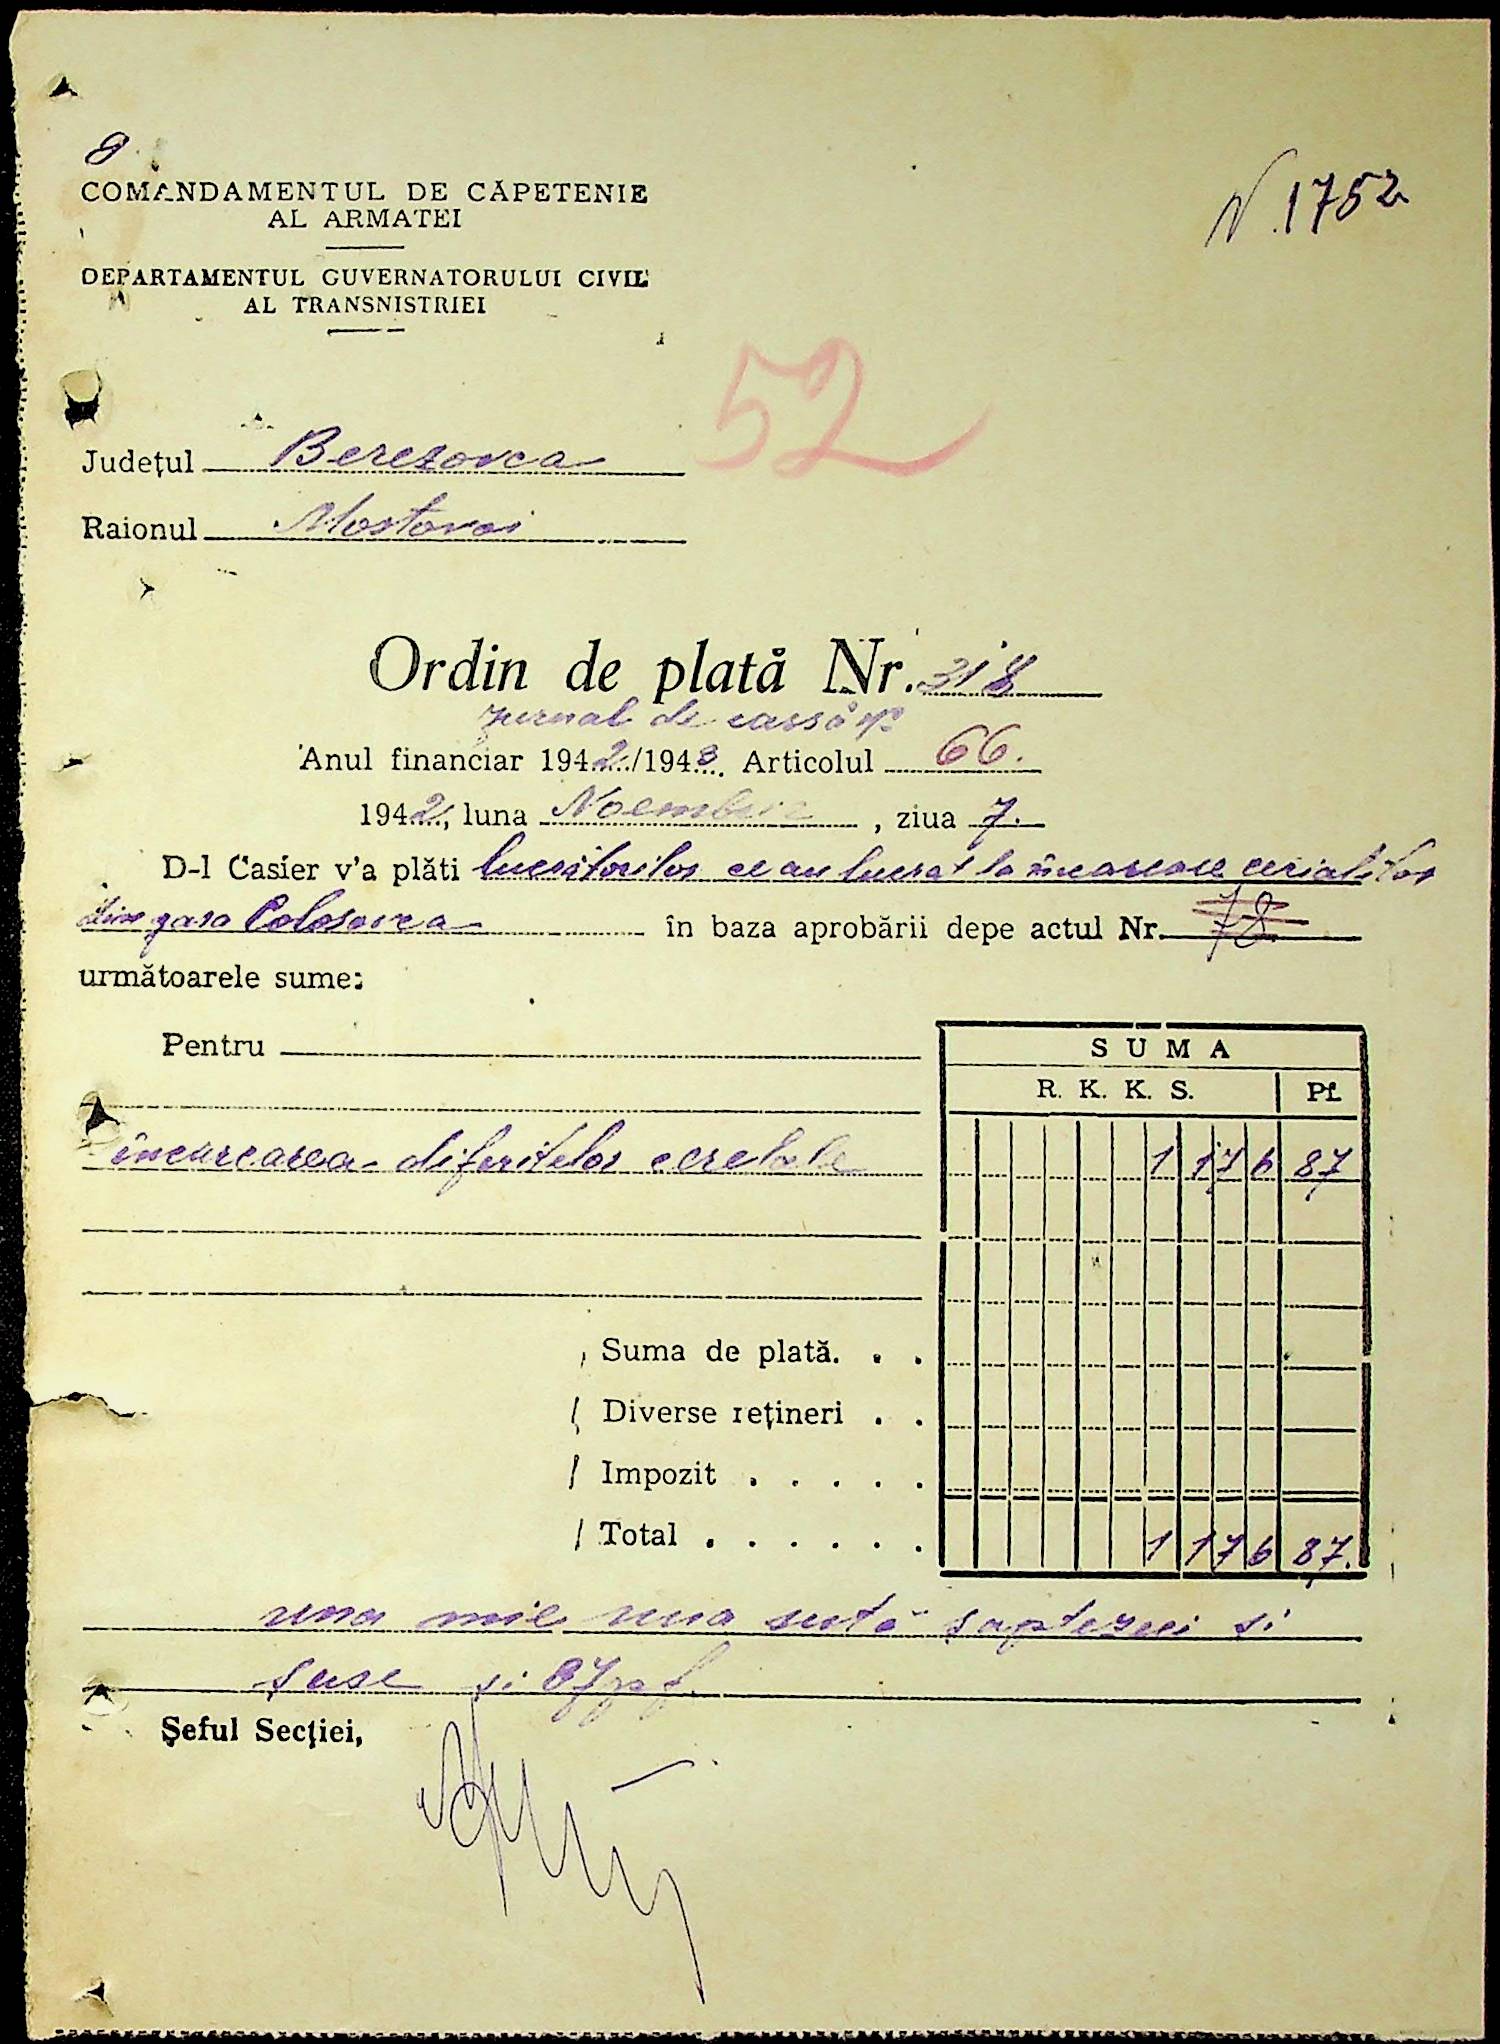 COMANDAMENTUL DE CĂPETENIE
AL ARMATEI
N. 1752
DEPARTAMENTUL GUVERNATORULUI CIVIL
AL TRANSNISTRIEI
52
Județul Beresovca
Raionul Mostovoi
Ordin de plată Nr. 318
Jurnal de cassă nr.
Anul financiar 1942/1943 Articolul 66.
1942, luna Noembrie, ziua 7.
D-l Casier v'a plăti lucrătorilor ce au lucrat la încarcare cerialelor
din gara Colosovca în baza aprobării depe actul Nr. 78
următoarele sume:
Pentru
SUMA
R. K. K. S. Pf.
încarcarea diferitelor cereale 1 176 87
Suma de plată. . .
Diverse rețineri . .
Impozit . . . . .
Total . . . . . . 1 176 87.
una mie una sută șaptezeci și
șase și 87 pf.
Șeful Secției,